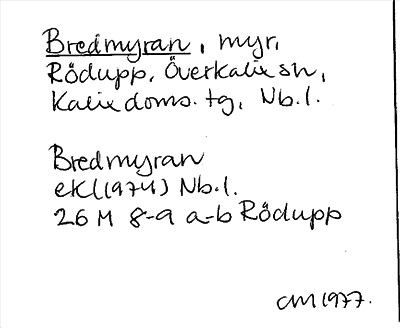 Bredmyran, myr,
Rödupp, Överkalix sn,
Kalix doms. tg, Nb. l.
Bredmyran
ekl (1974) Nb. l.
26 M 8-9 a-b Rödupp
CM 1977.